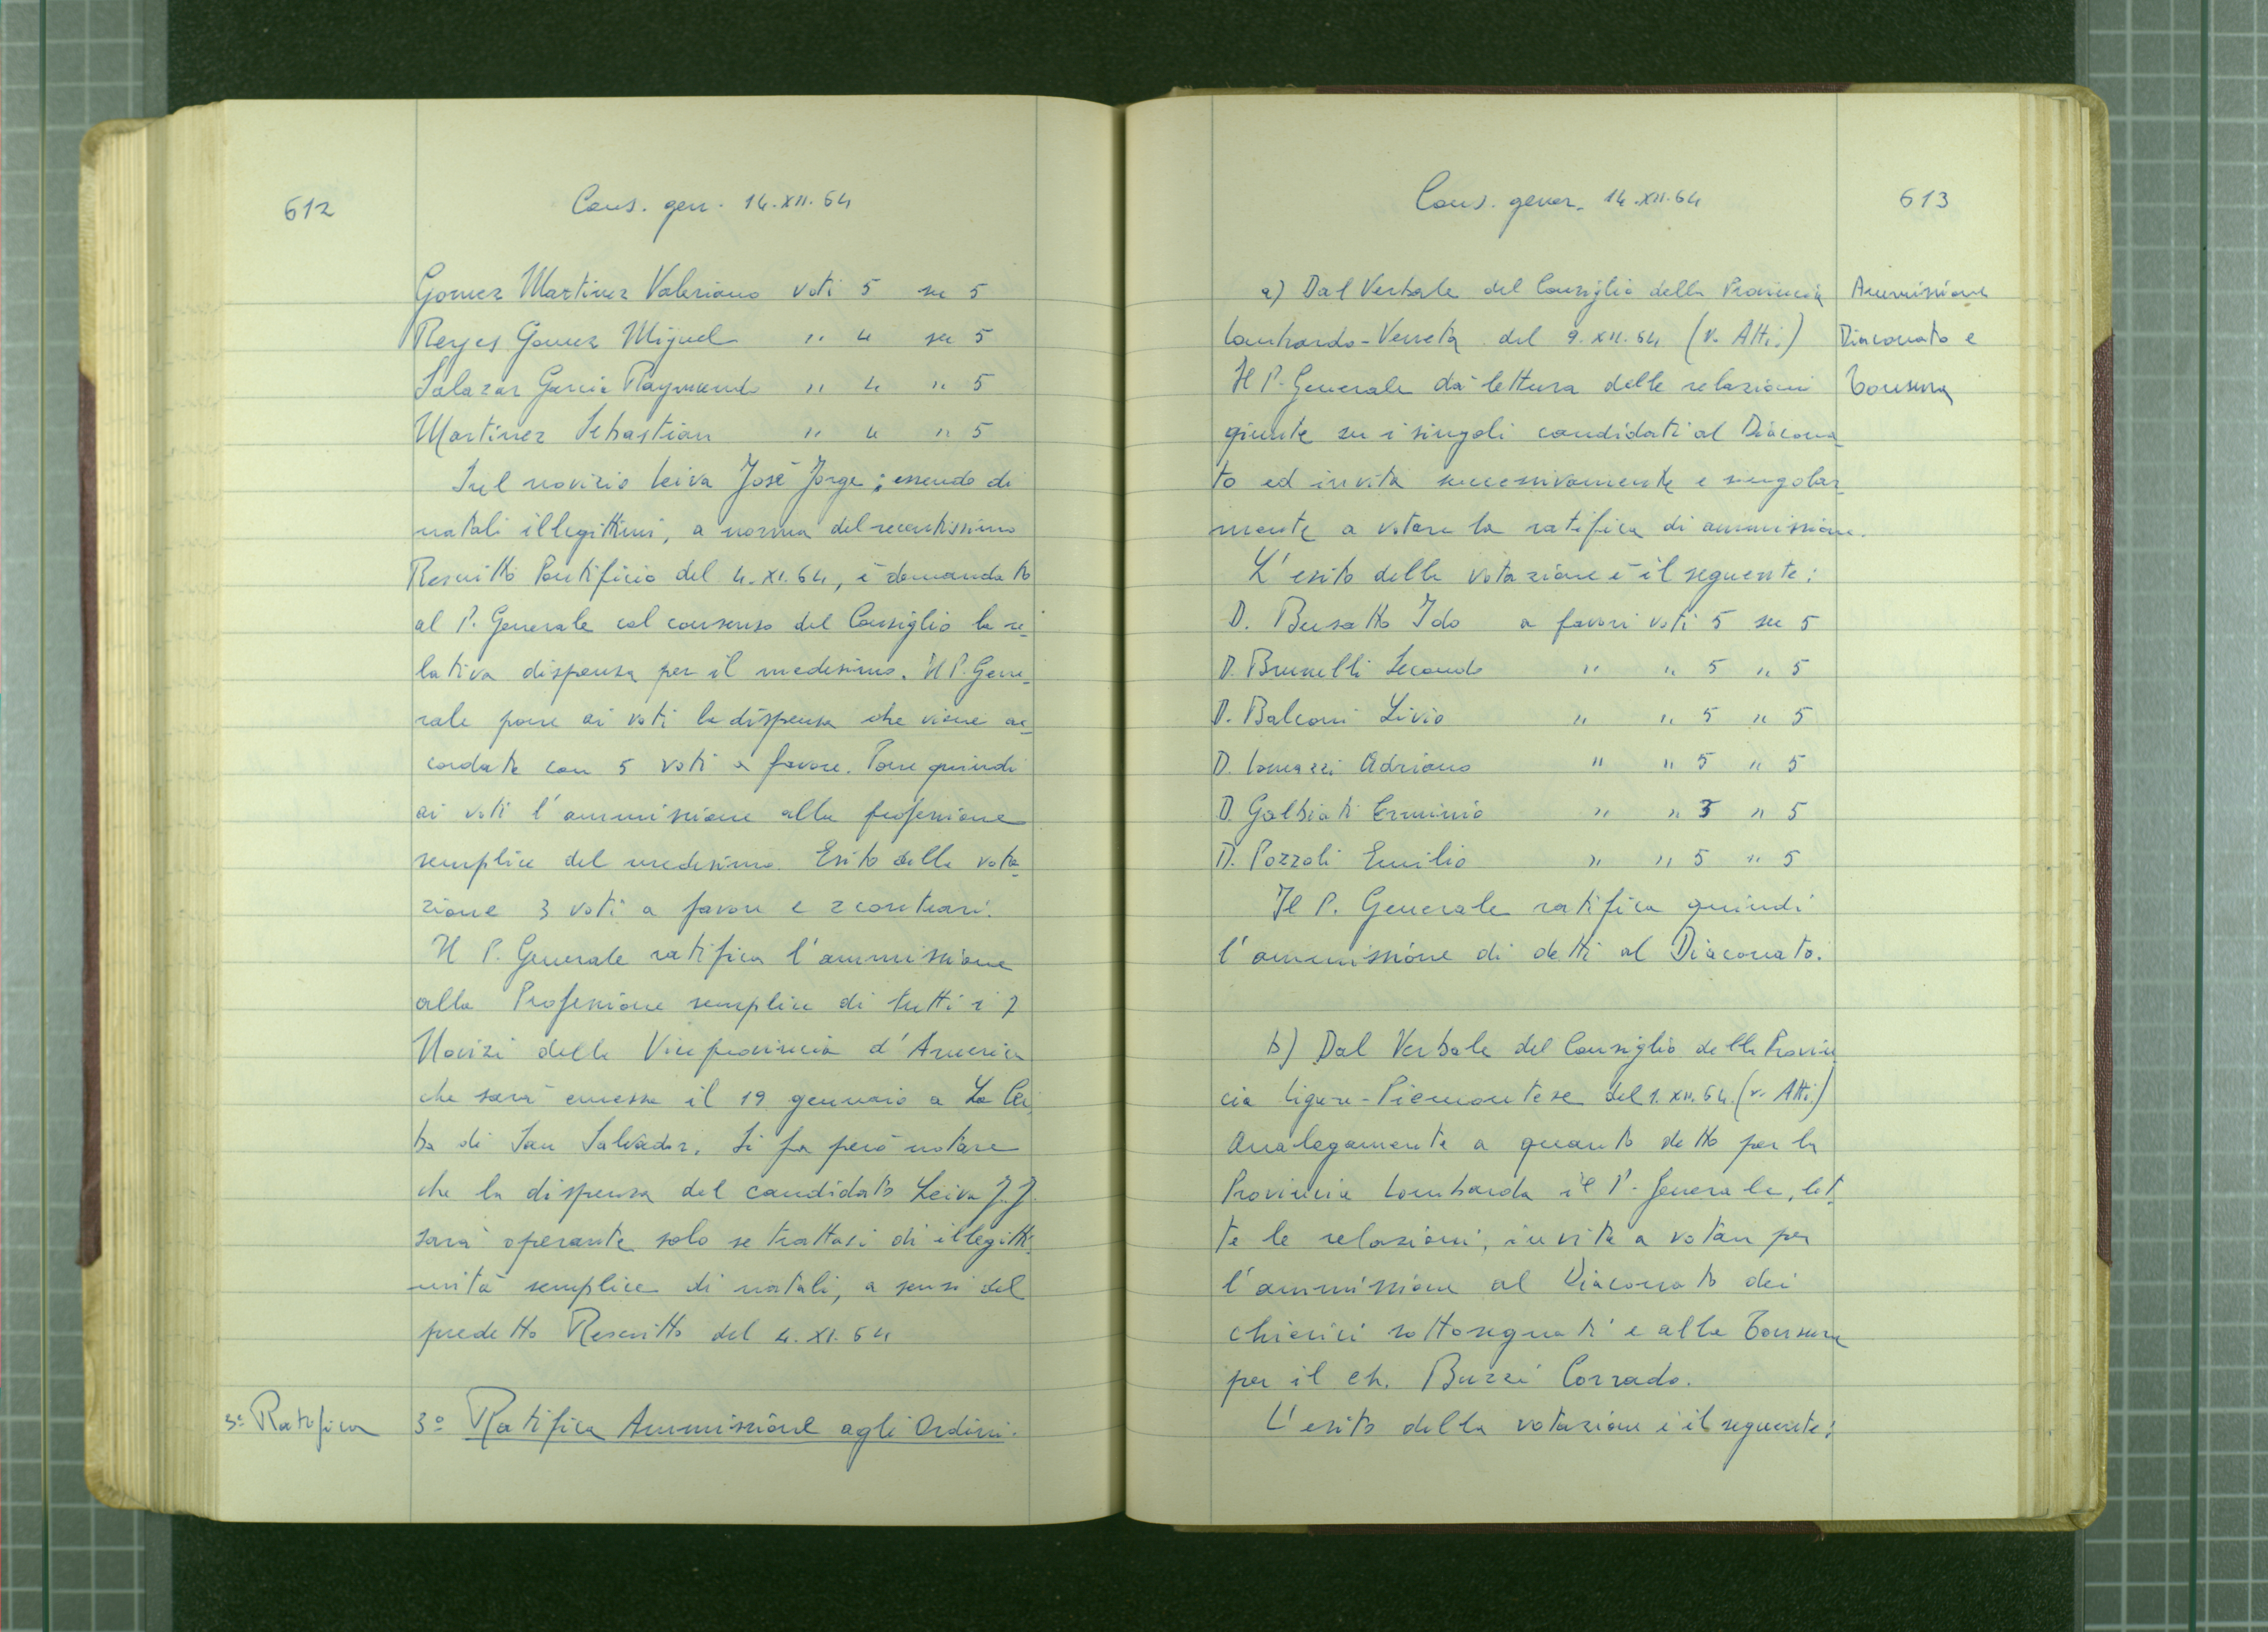 612
Cons. gen. 14.XII.64
Gomez Martinez Valeriano voti 5 su 5
Reyes Gomez Miguel " 4 su 5
Salazar Garcia Raymundo " 4 " 5
Martinez Sebastian " 4 " 5
Sul novizio Leiva José Jorge; essendo di
natali illegittimi, a norma del recentissimo
Rescritto Pontificio del 4.XI.64, è demandato
al P. Generale col consenso del Consiglio la re-
lativa dispensa per il medesimo. Il P. Gene-
rale pone ai voti la dispensa che viene ac-
cordata con 5 voti a favore. Pone quindi
ai voti l'ammissione alla professione
semplice del medesimo. Esito della vota-
zione 3 voti a favore e 2 contrari.
Il P. Generale ratifica l'ammissione
alla Professione semplice di tutti i 7
Novizi della Viceprovincia d'America
che sarà emessa il 19 gennaio a La Cei
ba di San Salvador. Si fa però notare
che la dispensa del candidato Leiva J.J.
sarà operante solo se trattasi di illegitti-
mità semplice di natali, a sensi del
predetto Rescritto del 4.XI.64
3º Ratifica
3º Ratifica Ammissione agli Ordini.
Cons. gener. 14.XII.64
613
a) Dal Verbale del Consiglio della Provincia
Lombardo-Veneta del 9.XII.64 (v. Atti.)
Il P. Generale dà lettura delle relazioni
giunte su i singoli candidati al Diacona-
to ed invita successivamente e singolar-
mente a votare la ratifica di ammissione.
Ammissione
Diaconato e
Tonsura
L'esito della votazione è il seguente:
D. Busatto Ido a favori voti 5 su 5
D. Brunelli Secondo " " 5 " 5
D. Balconi Livio " " 5 " 5
D. Lomazzi Adriano " " 5 " 5
D. Galbiati Erminio " " 5 " 5
D. Pozzoli Emilio " " 5 " 5
Il P. Generale ratifica quindi
l'ammissione di detti al Diaconato.
b) Dal Verbale del Consiglio della Provin
cia Ligure-Piemontese del 1.XII.64. (v. Atti)
Analogamente a quanto detto per la
Provincia Lombarda il P. Generale, let-
te le relazioni, invita a votare per
l'ammissione al Diaconato dei
chierici sottosegnati e alla Tonsura
per il Ch. Buzzi Corrado.
L'esito della votazione è il seguente: